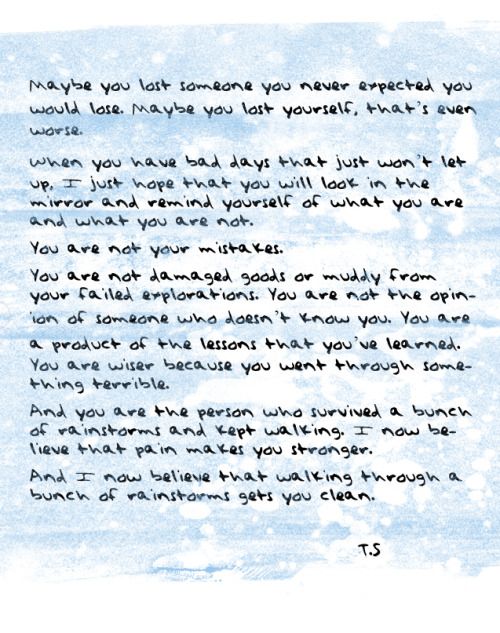 Maybe you lost someone you never expected you
would lose. Maybe you lost yourself, that's even
worse.
When you have bad days that just won't let
up, I just hope that you will look in the
mirror and remind yourself of what you are
and what you are not.
You are not your mistakes.
You are not damaged goods or muddy from
your failed explorations. You are not the opin-
ion of someone who doesn't know you. You are
a product of the lessons that you've learned.
You are wiser because you went through some-
thing terrible.
And you are the person who survived a bunch
of rainstorms and kept walking. I now be-
lieve that pain makes you stronger.
And I now believe that walking through a
bunch of rainstorms gets you clean.
T.S